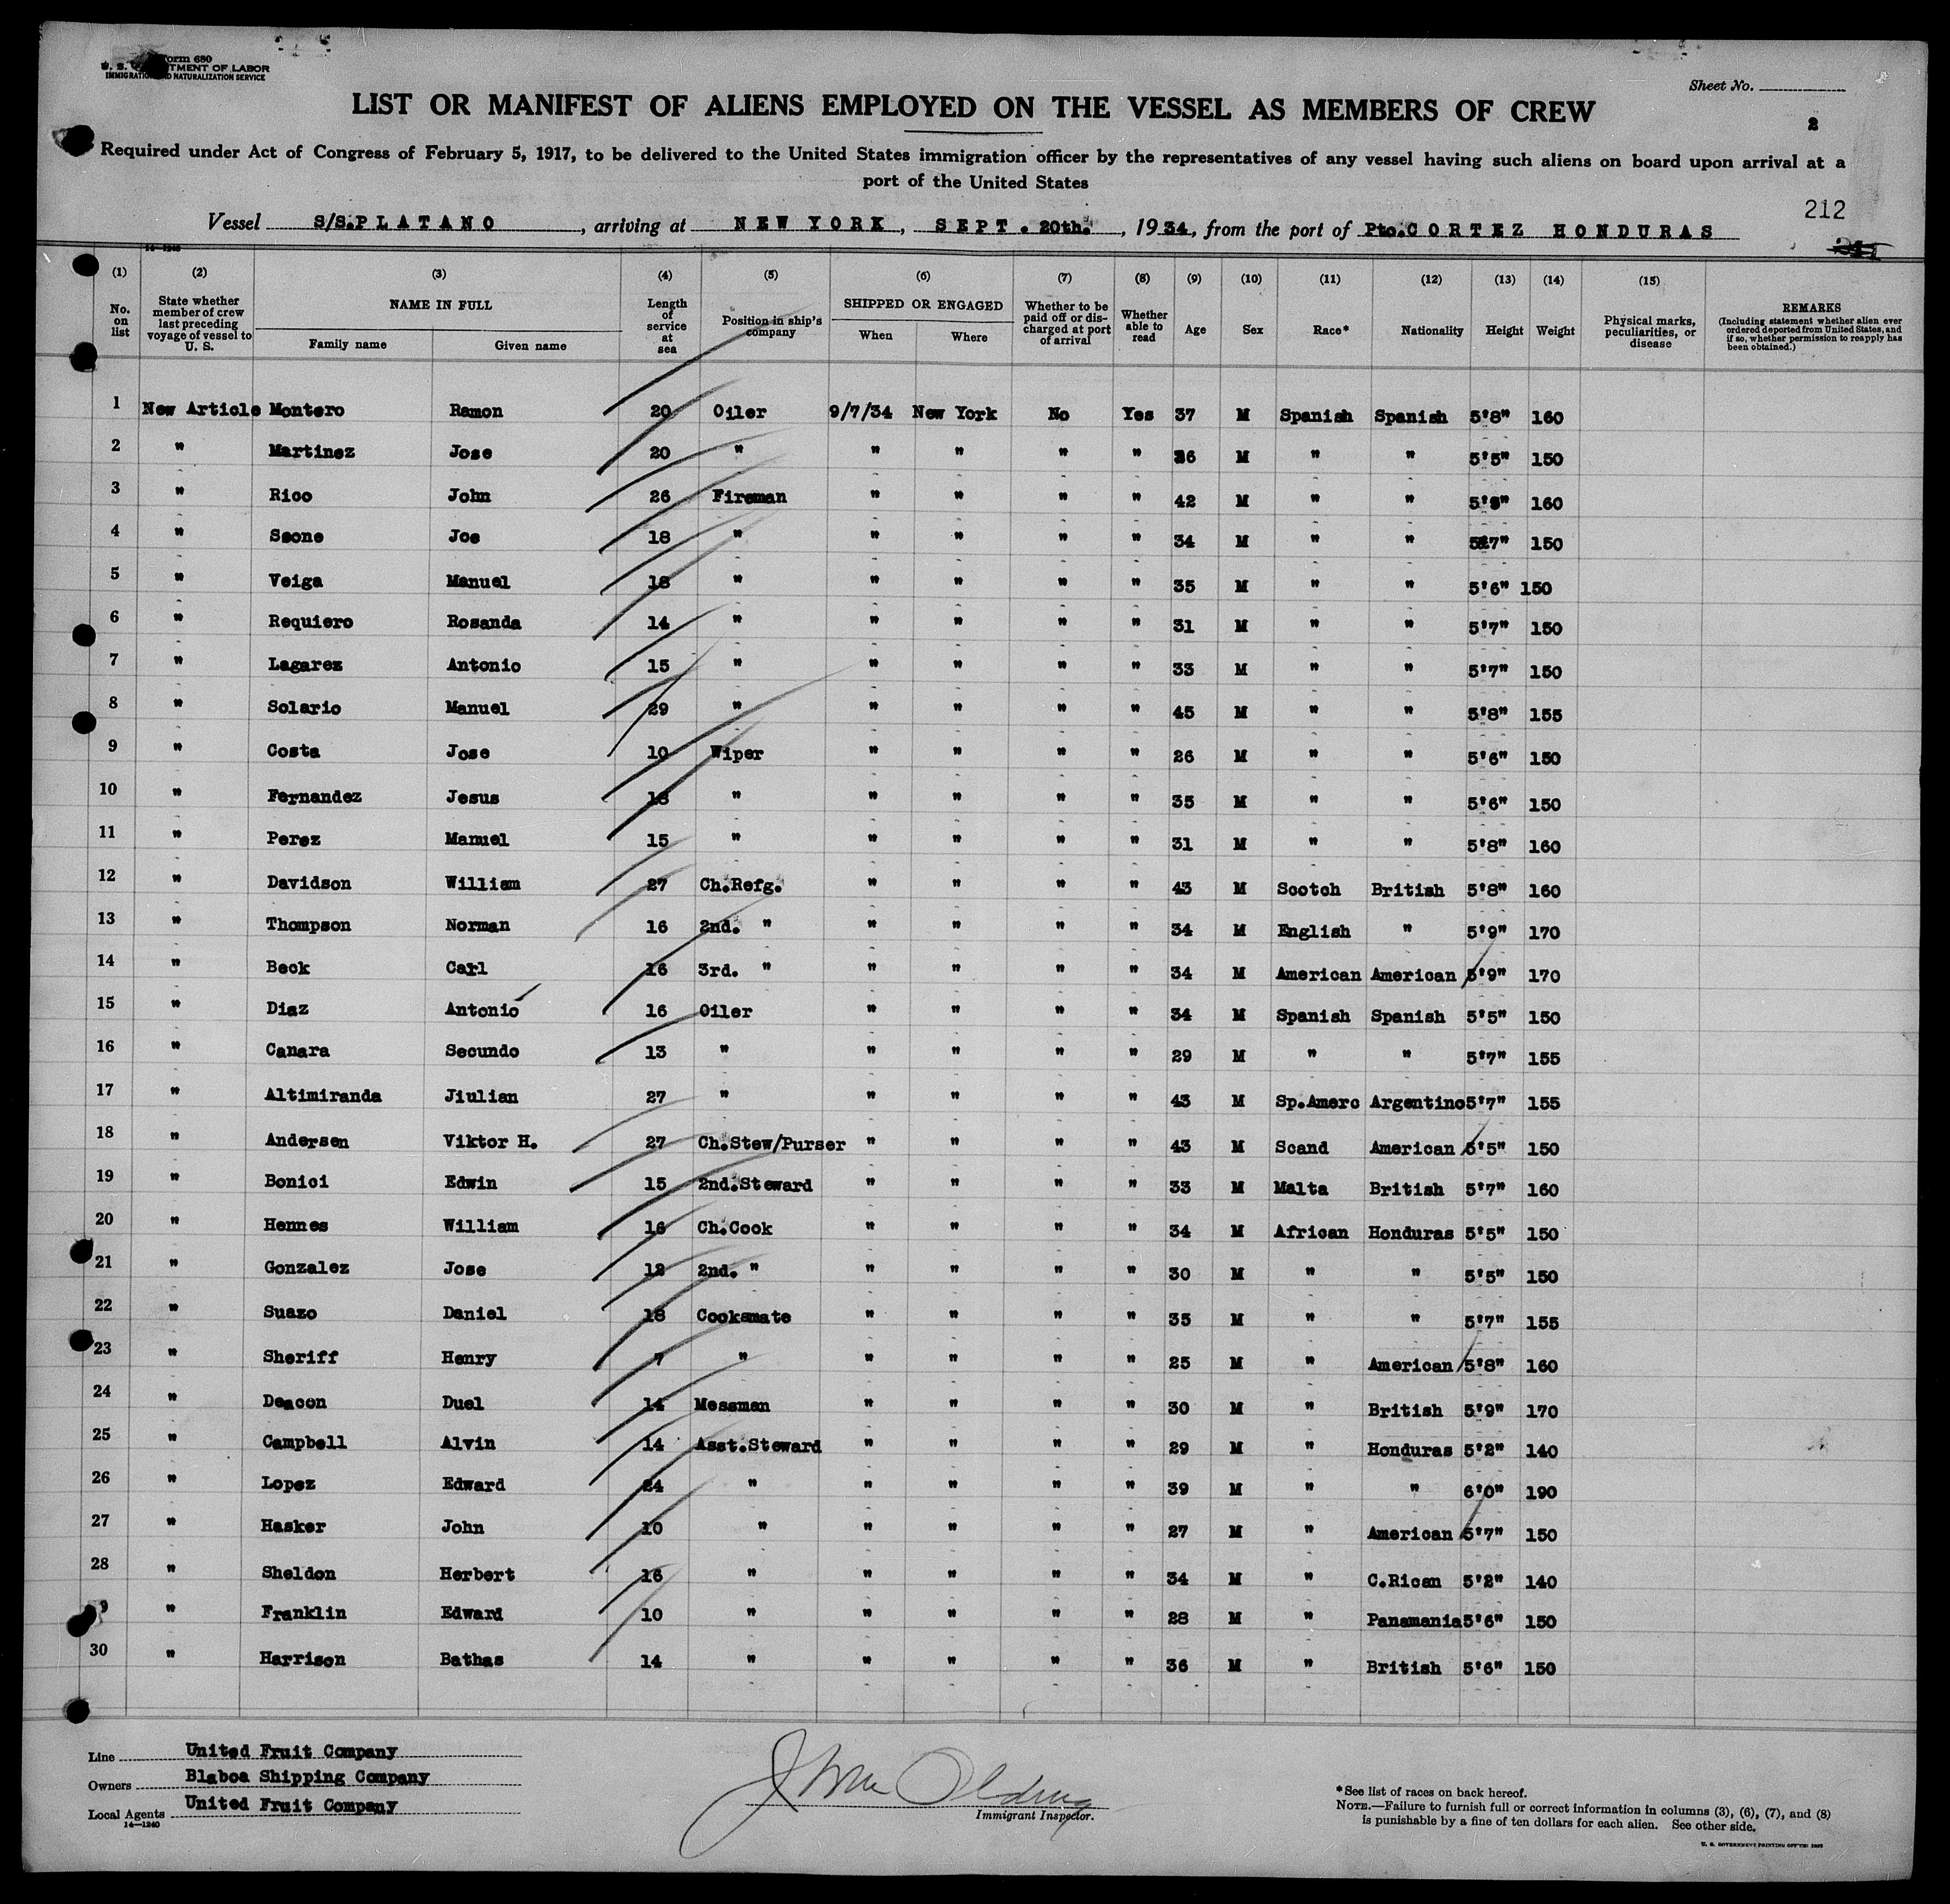 Form 680
U. S. DEPARTMENT OF LABOR
IMMIGRATION AND NATURALIZATION SERVICE
Sheet No.
LIST OR MANIFEST OF ALIENS EMPLOYED ON THE VESSEL AS MEMBERS OF CREW
2
Required under Act of Congress of February 5, 1917, to be delivered to the United States immigration officer by the representatives of any vessel having such aliens on board upon arrival at a
port of the United States
212
Vessel S/S.PLATANO, arriving at NEW YORK, SEPT. 20th., 1934, from the port of Pto.CORTEZ HONDURAS
14-1240
(1) (2) (3) (4) (5) (6) (7) (8) (9) (10) (11) (12) (13) (14) (15)
No. on list State whether member of crew last preceding voyage of vessel to U. S. NAME IN FULL Family name Given name Length of service at sea Position in ship's company SHIPPED OR ENGAGED When Where Whether to be paid off or discharged at port of arrival Whether able to read Age Sex Race* Nationality Height Weight Physical marks, peculiarities, or disease REMARKS (Including statement whether alien ever ordered deported from United States, and if so, whether permission to reapply has been obtained.)
1 New Article Montero Ramon 20 Oiler 9/7/34 New York No Yes 37 M Spanish Spanish 5'8" 160
2 " Martinez Jose 20 " " " " " 36 M " " 5'5" 150
3 " Rico John 26 Fireman " " " " 42 M " " 5'8" 160
4 " Seone Joe 18 " " " " " 34 M " " 5'7" 150
5 " Veiga Manuel 18 " " " " " 35 M " " 5'6" 150
6 " Requiero Rosanda 14 " " " " " 31 M " " 5'7" 150
7 " Lagarez Antonio 15 " " " " " 33 M " " 5'7" 150
8 " Solario Manuel 29 " " " " " 45 M " " 5'8" 155
9 " Costa Jose 10 Wiper " " " " 26 M " " 5'6" 150
10 " Fernandez Jesus 18 " " " " " 35 M " " 5'6" 150
11 " Perez Manuel 15 " " " " " 31 M " " 5'8" 160
12 " Davidson William 27 Ch.Refg. " " " " 43 M Scotch British 5'8" 160
13 " Thompson Norman 16 2nd. " " " " " 34 M English " 5'9" 170
14 " Beck Carl 16 3rd. " " " " " 34 M American American 5'9" 170
15 " Diaz Antonio 16 Oiler " " " " 34 M Spanish Spanish 5'5" 150
16 " Canara Secundo 13 " " " " " 29 M " " 5'7" 155
17 " Altimiranda Jiulian 27 " " " " " 43 M Sp.Amerc Argentino 5'7" 155
18 " Andersen Viktor H. 27 Ch.Stew/Purser " " " " 43 M Scand American 5'5" 150
19 " Bonici Edwin 15 2nd.Steward " " " " 33 M Malta British 5'7" 160
20 " Hennes William 16 Ch.Cook " " " " 34 M African Honduras 5'5" 150
21 " Gonzalez Jose 12 2nd. " " " " " 30 M " " 5'5" 150
22 " Suazo Daniel 18 Cooksmate " " " " 35 M " " 5'7" 155
23 " Sheriff Henry 7 " " " " " 25 M " American 5'8" 160
24 " Deacon Duel 14 Messman " " " " 30 M " British 5'9" 170
25 " Campbell Alvin 14 Asst.Steward " " " " 29 M " Honduras 5'2" 140
26 " Lopez Edward 24 " " " " " 39 M " " 6'0" 190
27 " Hasker John 10 " " " " " 27 M " American 5'7" 150
28 " Sheldon Herbert 16 " " " " " 34 M " C.Rican 5'2" 140
9 " Franklin Edward 10 " " " " " 28 M " Panamania 5'6" 150
30 " Harrison Bathas 14 " " " " " 36 M " British 5'6" 150
Line United Fruit Company
Owners Blaboa Shipping Company
Local Agents United Fruit Company
14-1240
Immigrant Inspector.
*See list of races on back hereof.
NOTE.—Failure to furnish full or correct information in columns (3), (6), (7), and (8)
is punishable by a fine of ten dollars for each alien. See other side.
U. S. GOVERNMENT PRINTING OFFICE: